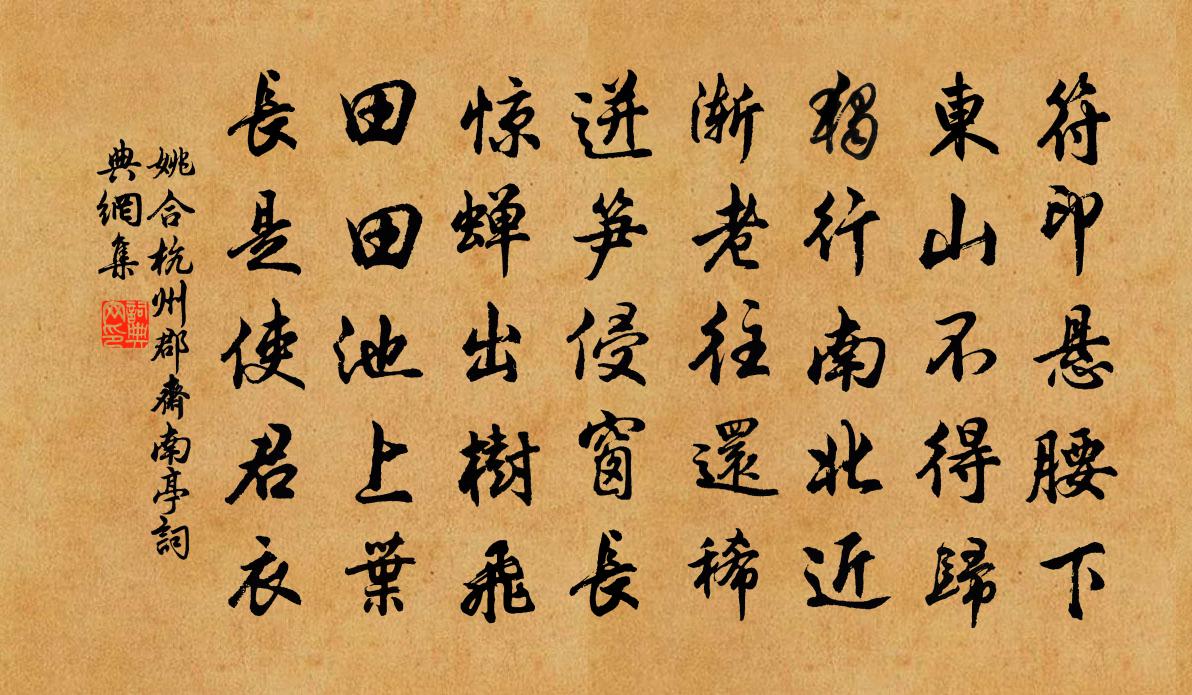 符印悬腰下
東山不得歸
獨行南北近
漸老往還稀
迸笋侵窗長
惊蝉出樹飛
田田池上葉
長是使君衣
姚合杭州郡齋南亭詞
典網集
詞典
网印